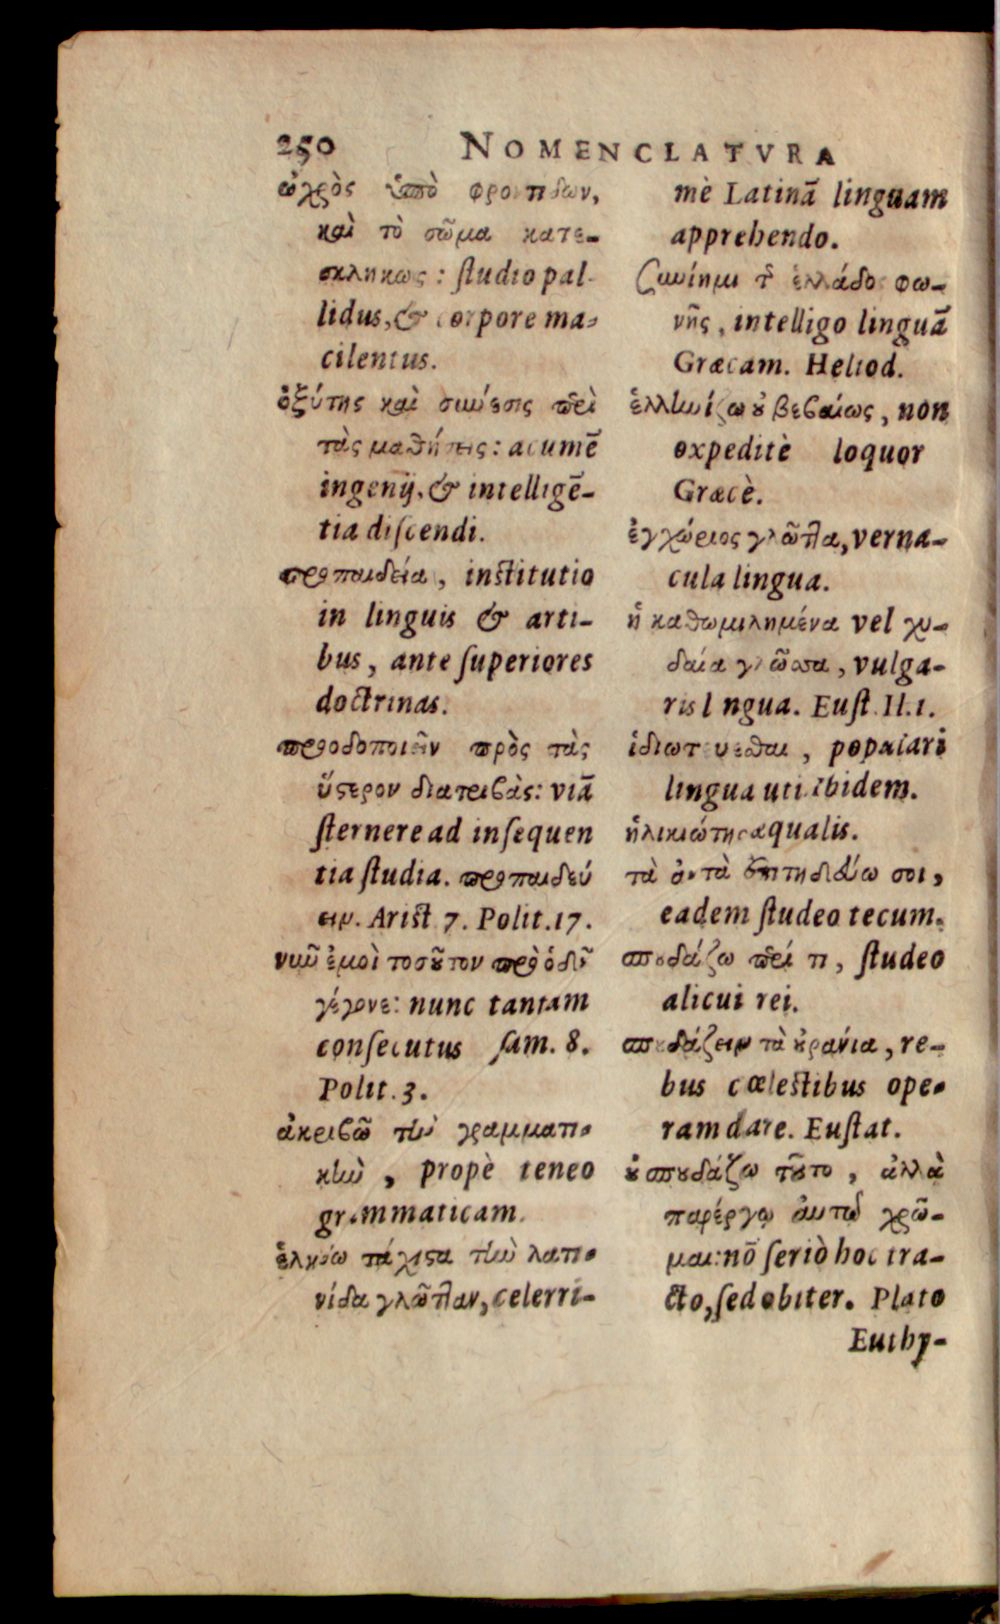 250 NOMENCLATVRA
ὠχρὸς ὑπὸ φροντίδων,
καὶ τὸ σῶμα κατε-
σκληκως: ſtudio pal-
lidus, & corpore ma-
cilentus.
ὀξύτης καὶ σιωέσις περὶ
τὰς μαθήσεις: acumē
ingenij, & intelligē-
tia diſcendi.
προπαιδεία, inſtitutio
in linguis & arti-
bus, ante ſuperiores
doctrinas.
προοδοποιεῖν πρὸς τὰς
ὕστερον διατριβὰς: viā
ſternere ad inſequen
tia ſtudia. προπαιδεύ
ειν. Ariſt 7. Polit. 17.
νυνῦ ἐμοὶ τοσοῦτον πρὸ ὁδοῦ
γέγονε: nunc tantam
conſecutus ſum. 8.
Polit. 3.
ἀκριβῶ τὴν γραμματι-
κὴν, propè teneo
grammaticam.
ἑλκύω τάχιστα τὴν λατι-
νίδα γλῶτταν, celerri-
mè Latinā linguam
apprehendo.
συνίημι τῆς ἑλλάδος φω-
νῆς, intelligo linguā
Græcam. Heliod.
ἑλληνίζω οὐ βεβαίως, non
expeditè loquor
Græcè.
ἐγχώριος γλῶττα, verna-
cula lingua.
ἡ καθωμιλημένα vel χυ-
δαία γλῶσσα, vulga-
ris lingua. Euſt. Il. 1.
ἰδιωτεύεσθαι, popalari
lingua uti. Ibidem.
ἡλικιώτης æqualis.
τὰ αὐτὰ ἐπιτηδεύω σοι,
eadem ſtudeo tecum.
σπουδάζω περί τι, ſtudeo
alicui rei.
σπουδάζειν τὰ οὐράνια, re-
bus cœleſtibus ope-
ram dare. Euſtat.
οὐ σπουδάζω τοῦτο, ἀλλὰ
παρέργῳ αὐτῷ χρῶ-
μαι: nō ſeriò hoc tra-
cto, ſed obiter. Plato
Euthy-